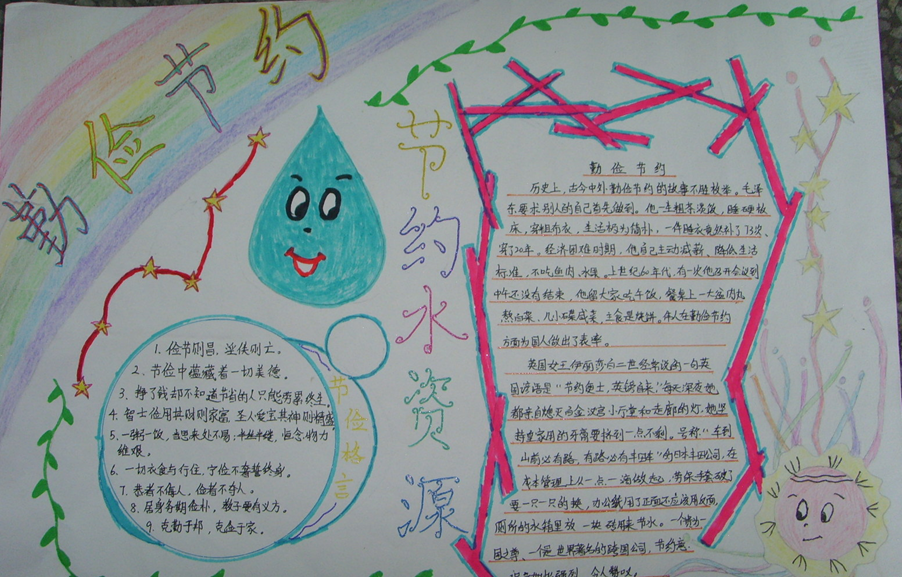 勤俭节约
节约水资源
节俭格言
1. 俭节则昌，淫佚则亡。
2. 节俭中蕴藏着一切美德。
3. 挣了钱却不知道节省的人只能劳累终生。
4. 智士俭用其财则家富 圣人爱宝其神则精盛
5. 一粥一饭，当思来处不易；半丝半缕，恒念物力
维艰。
6. 一切衣食与行住，宁俭不奢誓终身。
7. 恭者不侮人，俭者不夺人。
8. 居身务期俭朴，教子要有义方。
9. 克勤于邦，克俭于家。
勤俭节约
历史上，古今中外勤俭节约的故事不胜枚举。毛泽
东要求别人的自己首先做到。他一生粗茶淡饭，睡硬板
床，穿粗布衣，生活极为简朴，一件睡衣竟然补了73次、
穿了20年。经济困难时期，他自己主动减薪、降低生活
标准，不吃鱼肉、水果。上世纪60年代，有一次他召开会议到
中午还没有结束，他留大家吃午饭，餐桌上一大盆肉丸
熬白菜、几小碟咸菜，主食是烧饼。令人在勤俭节约
方面为国人做出了表率。
英国女王伊丽莎白二世经常说的一句英
国谚语是"节约便士，英镑自来"，每天深夜她
都亲自熄灭白金汉宫小厅堂和走廊的灯，她坚
持皇家用的牙膏要挤到一点不剩。号称"车到
山前必有路，有路必有丰田车"的日本丰田公司，在
成本管理上从一点一滴做起，劳保手套破了
要一只一只的换，办公纸用了正面还要用反面，
厕所的水箱里放一块砖用来节水。一个
国之尊、一个世界著名的跨国公司，节约意